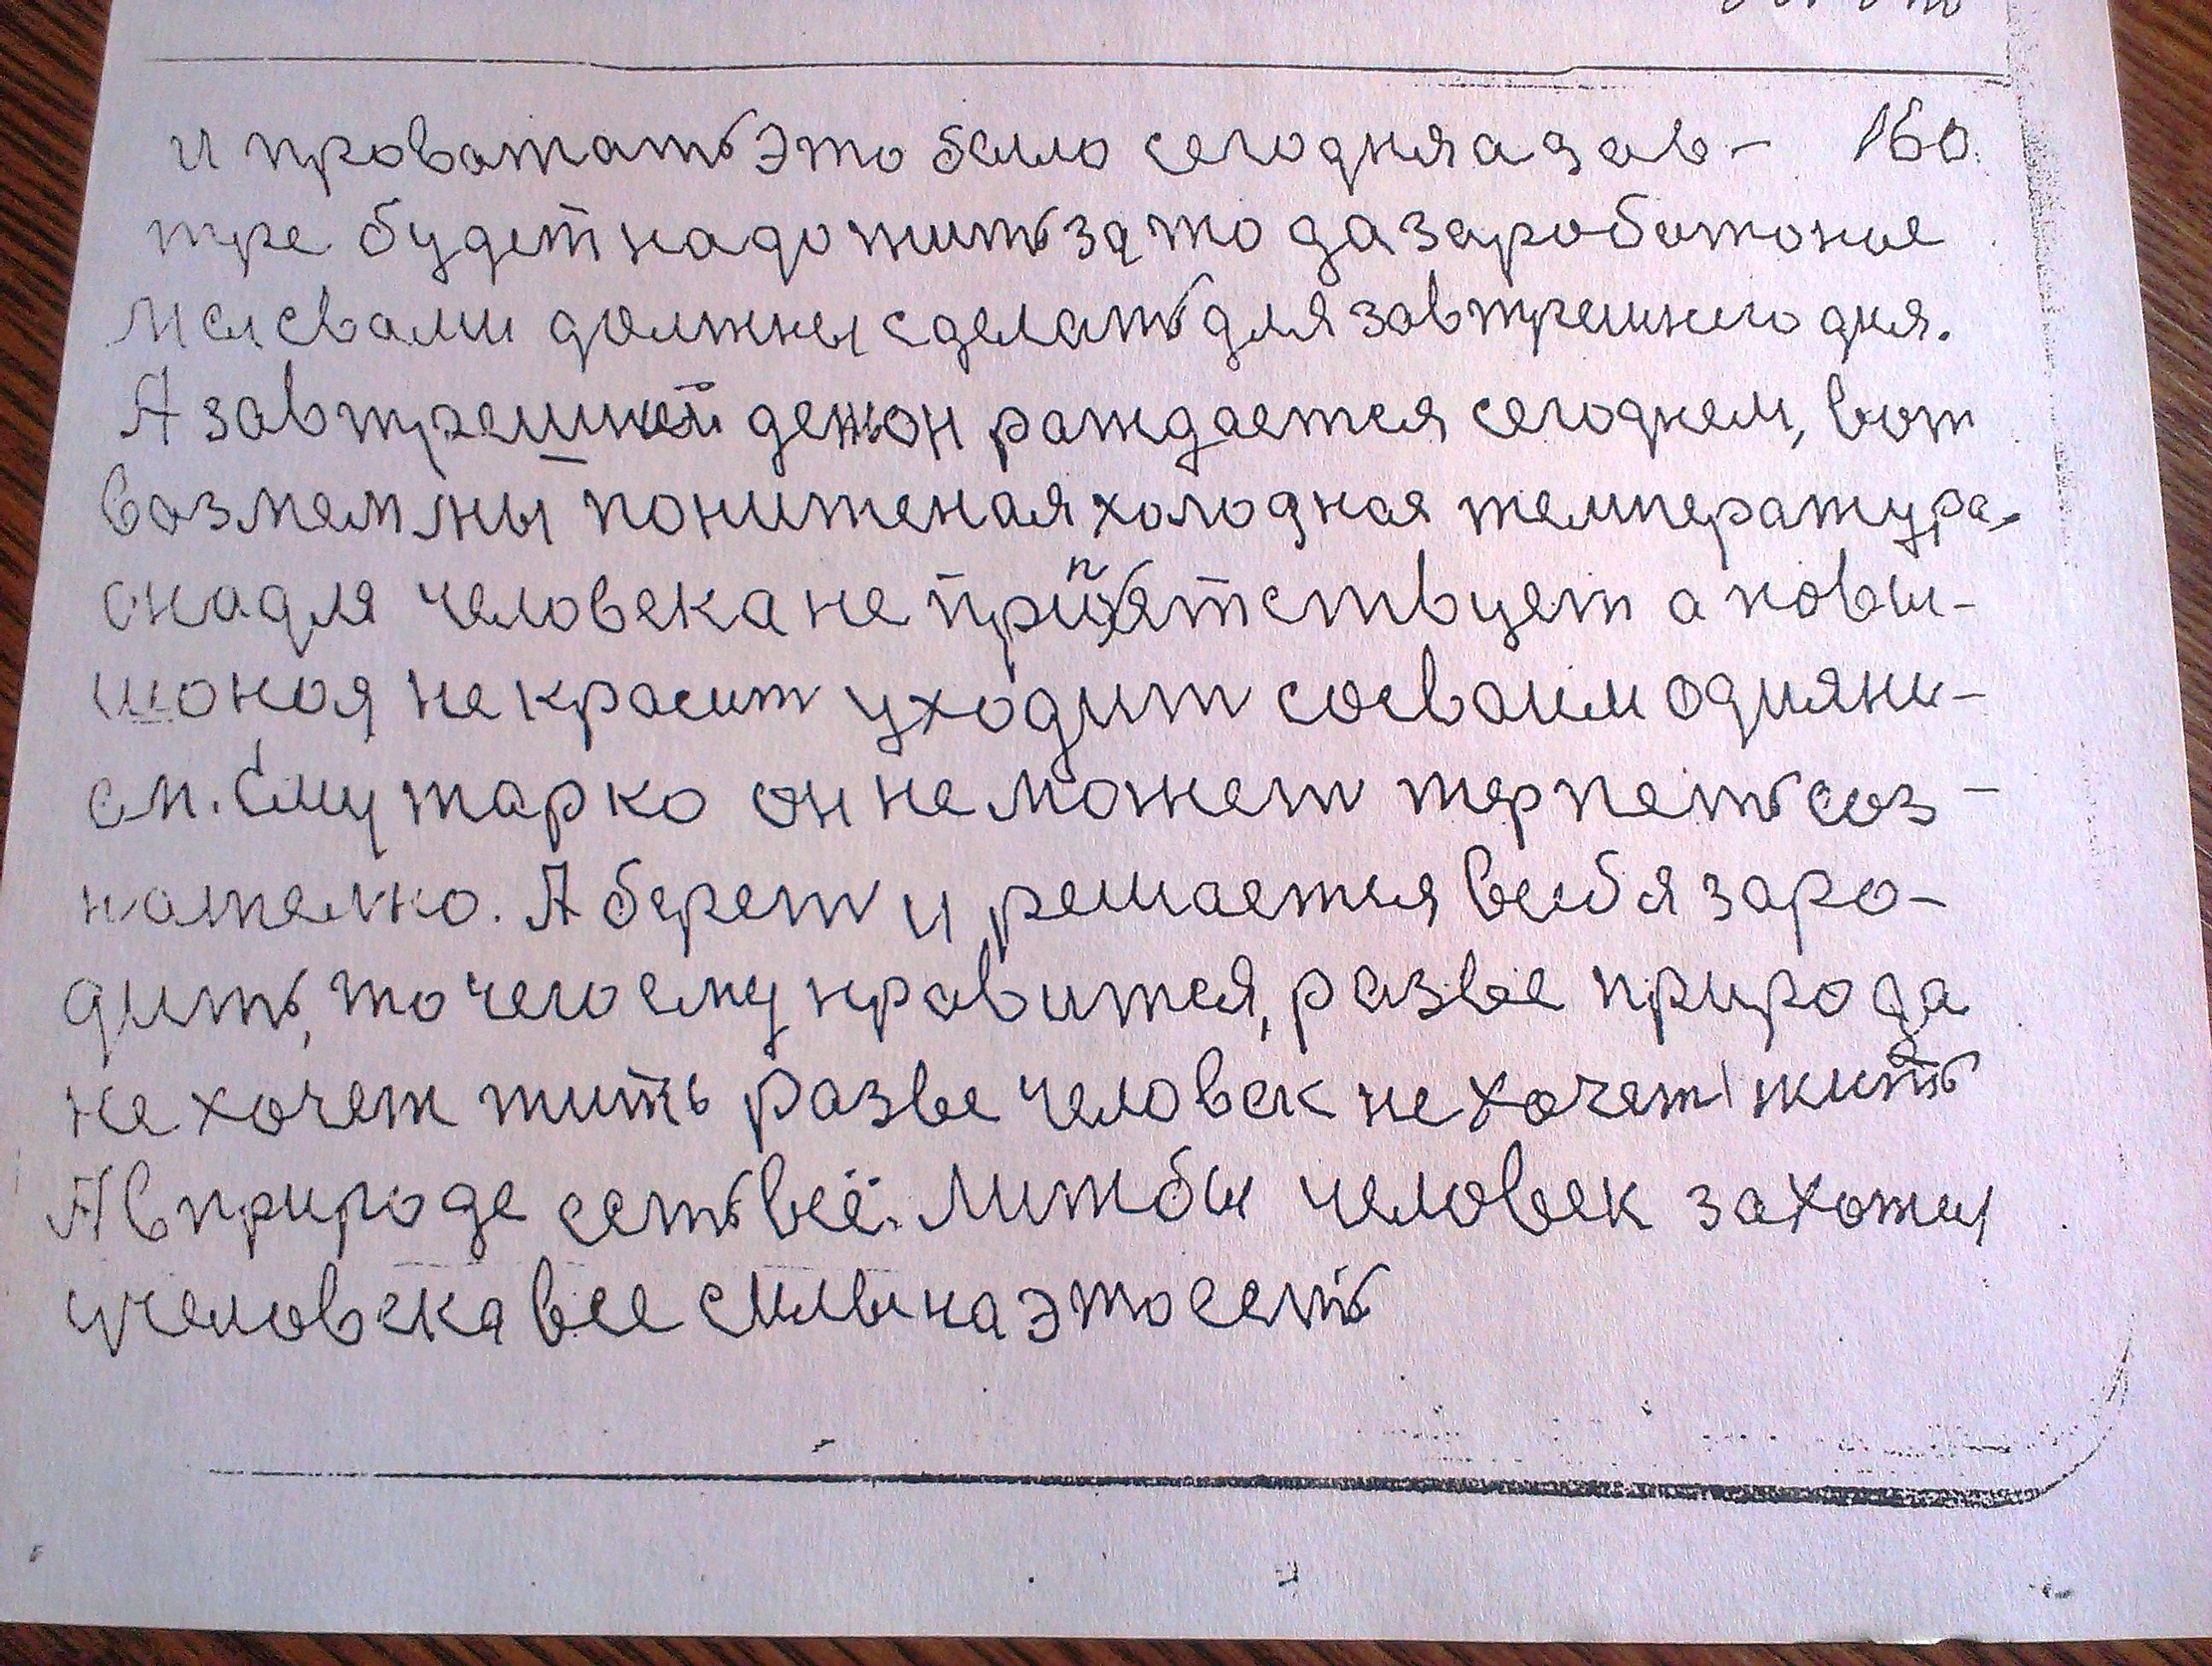 и проватать это было сегодня а зав- 160.
тре будет надо жить за то за заработоное
мы свами должны сделать для завтрешнего дня.
А завтрешней ден он раждается сегоднем, вот
возмем мы пониженая холодная температура.
она для человека не препятствует а повы-
шоная не красит уходит сосваим одияни-
ем. Ему жарко он не может терпеть соз-
нателно. А берет и решается всебя заро-
дить, то чего ему нравится, развe природа
не хочет жить разве человек не хочет жить
А в природе есть всё. Лижбы человек захотил
учеловека все силы на это есть